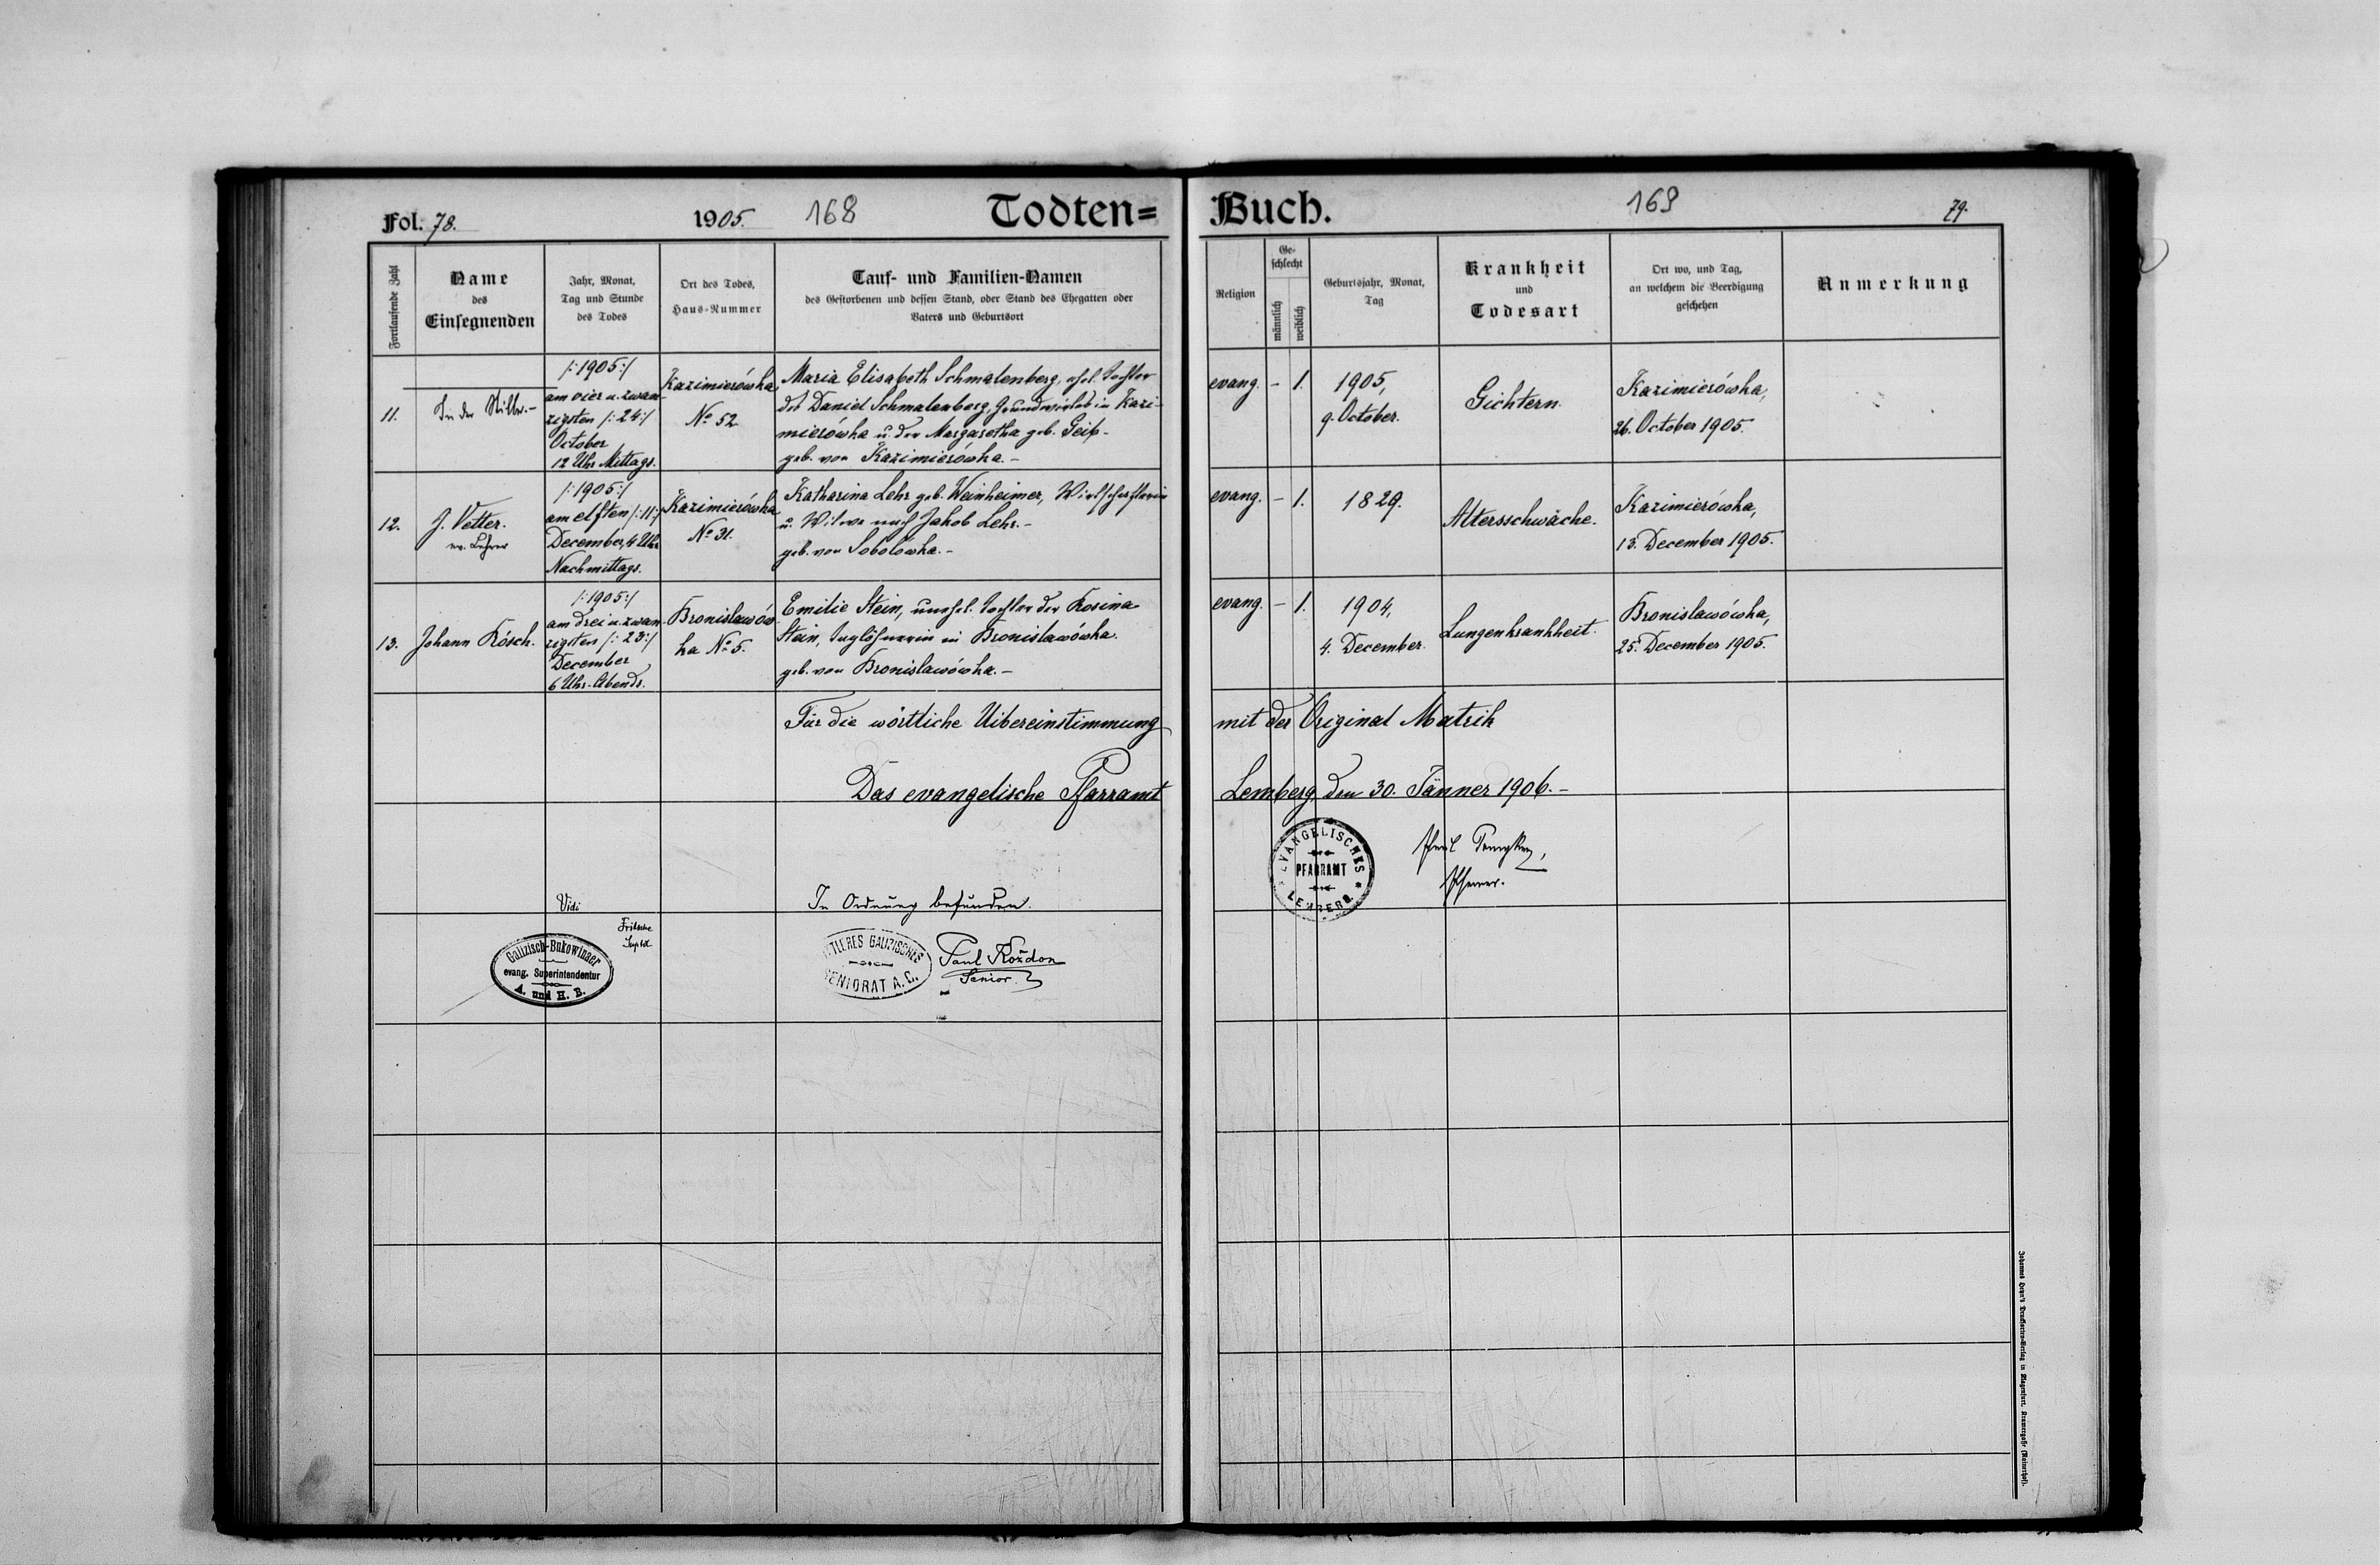 Fol. 78.
1905.
168
Todten=
Buch.
169
79.
Fortlaufende Zahl
Name
des
Einsegnenden
Jahr, Monat,
Tag und Stunde
des Todes
Ort des Todes,
Haus-Nummer
Tauf- und Familien-Namen
des Gestorbenen und dessen Stand, oder Stand des Ehegatten oder
Vaters und Geburtsort
Religion
Ge-
schlecht
männlich
weiblich
Geburtsjahr, Monat,
Tag
Krankheit
und
Todesart
Ort wo, und Tag,
an welchem die Beerdigung
geschehen
Anmerkung
11.
In der Stille.-
/:1905:/
am vier u. zwan-
zigsten /:24:/
October
12 Uhr Mittags.
Kazimierówka,
No 52.
Maria Elisabeth Schmalenberg, ehel. Tochter
des Daniel Schmalenberg, Grundwirtes in Kazi-
mierówka u. der Margaretha geb.
geb. von Kazimierówka.-
evang.
-
1.
1905,
9. October.
Gichtern.
Kazimierówka,
26. October 1905.
12.
J. Vetter.
ev. Lehrer
/:1905:/
am elften /:11:/
December, 4 Uhr
Nachmittags.
Kazimierówka
No 31.
Katharina Lehr geb. Weinheimer, Wirtschafterin
u. Witwe nach Jakob Lehr.-
geb. von Sobolówka.-
evang.
-
1.
1829.
Altersschwäche.
Kazimierówka,
13. December 1905.
13.
Johann Kösch.
/:1905:/
am drei u. zwan-
zigsten /:23:/
December
6 Uhr Abends.
Bronislawów-
ka No 5.
Emilie Stein, unehel. Tochter der Rosina
Stein, Taglöhnerin in Bronislawówka.
geb. von Bronislawówka.-
evang.
-
1.
1904,
4. December.
Lungenkrankheit.
Bronislawówka,
25. December 1905.
Für die wörtliche Uibereinstimmung
mit der Original Matrik
Das evangelische Pfarramt
Lemberg, den 30. Jänner 1906.-
EVANGELISCHES
PFARRAMT
LEMBERG
Pfarrer.
Vidi
Fritsche
Suptdt
Galizisch-Bukowinaer
evang. Superintendentur
A. und H. B.
In Ordnung befunden.
MITTLERES GALIZISCHES
SENIORAT A.C.
Paul Kozdon
Senior.